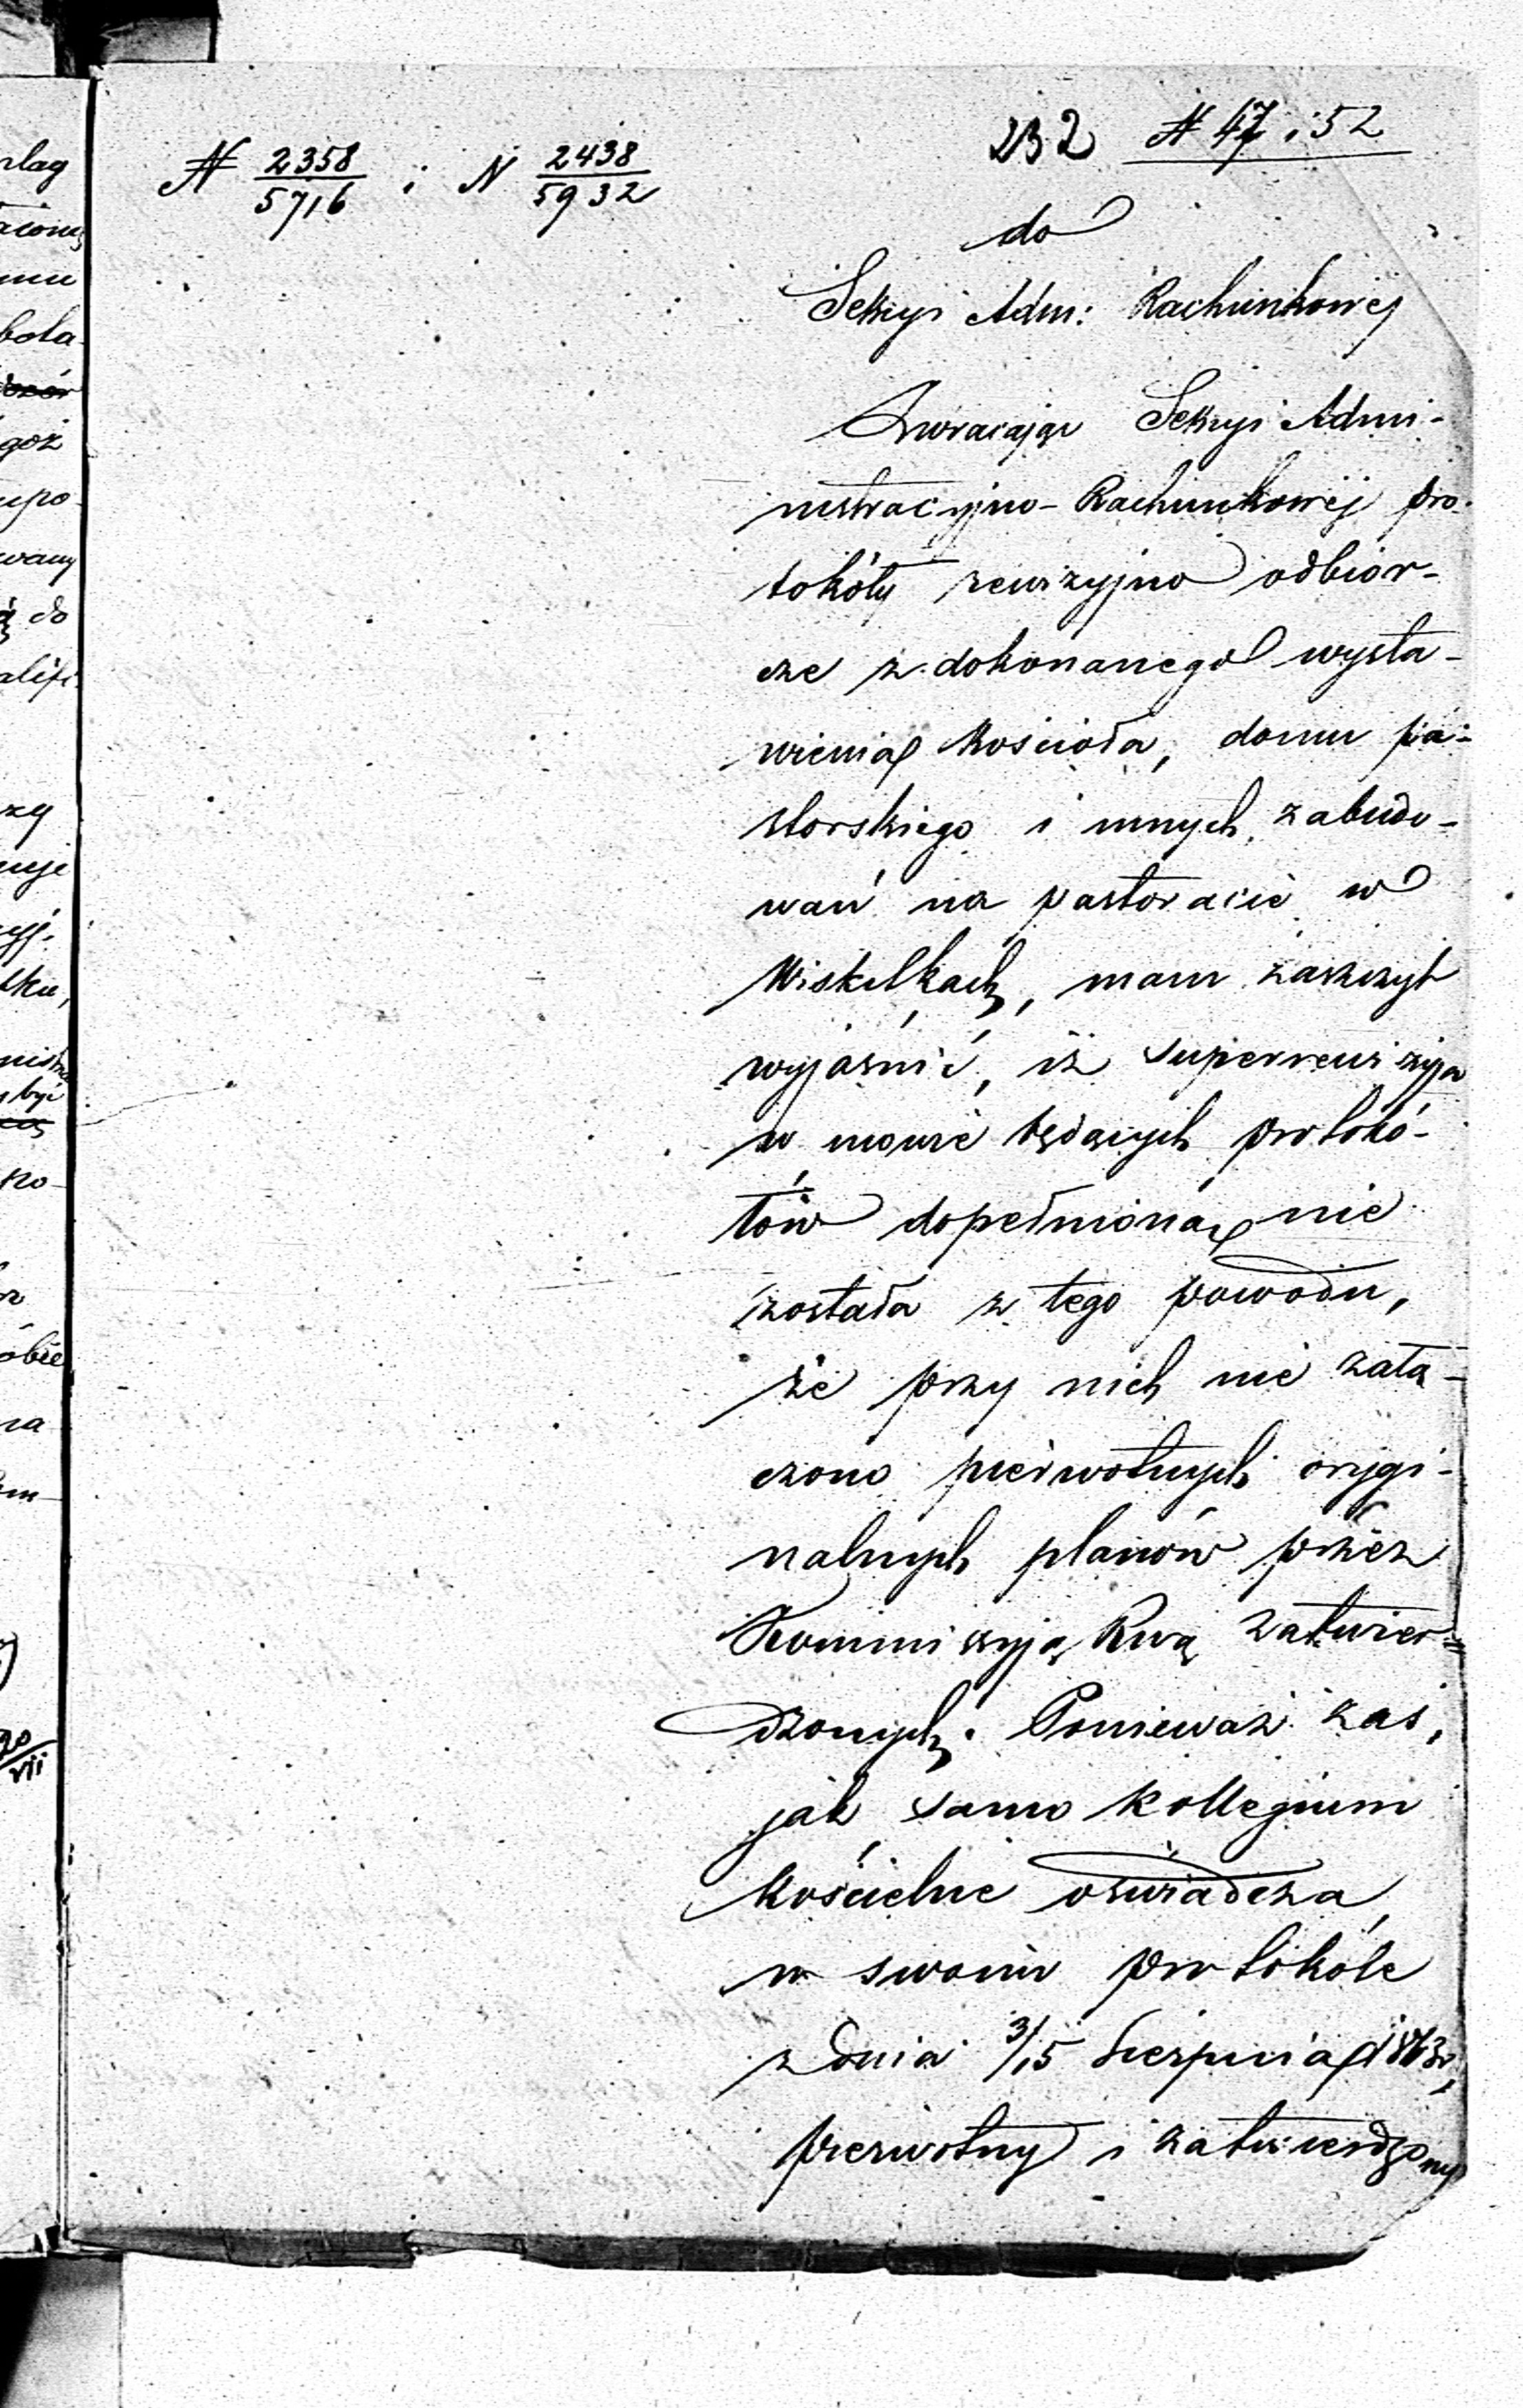 232 N 47 i 52
N 2358/5716 i N 2438/5932
do
Sekcyi Adm: Rachunkowej
Zwracając Sekcyi Admi-
nistracyjno-Rachunkowéj pro-
tokóły rewizyjno odbior-
cze z dokonanego wysta-
wienia kościoła, domu pa-
storskiego i innych zabudo-
wań na pastoracie w
Wiskitkach, mam zaszczyt
wyjaśnić, iż superrewizyja
w mowie będących protokó-
łów dopełnioną nie
została z tego powodu,
że przy nich nie załą-
czono pierwotnych orygi-
nalnych planów przez
Kommissyją Rwą zatwier-
dzonych. Ponieważ zaś,
jak samo kollegium
kościelne oświadcza
w swoim protokóle
z dnia 3/15 Sierpnia 1863r,
pierwotny i zatwierdzony
rlag
mu
bola
goż
upo-
wany
do
alifi-
zy
uje
tku,
być
ko-
óbie
na
20/VII